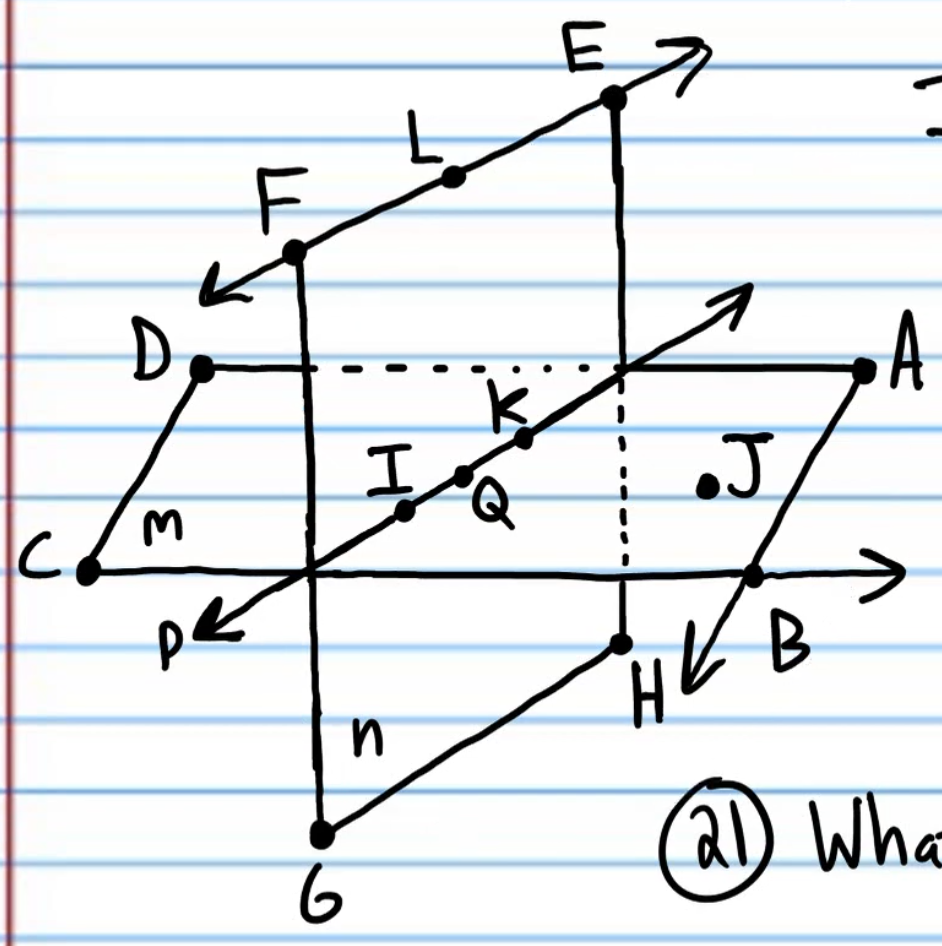 E
L
F
D
A
K
I
J
Q
m
C
p
B
H
n
21 Wha
G